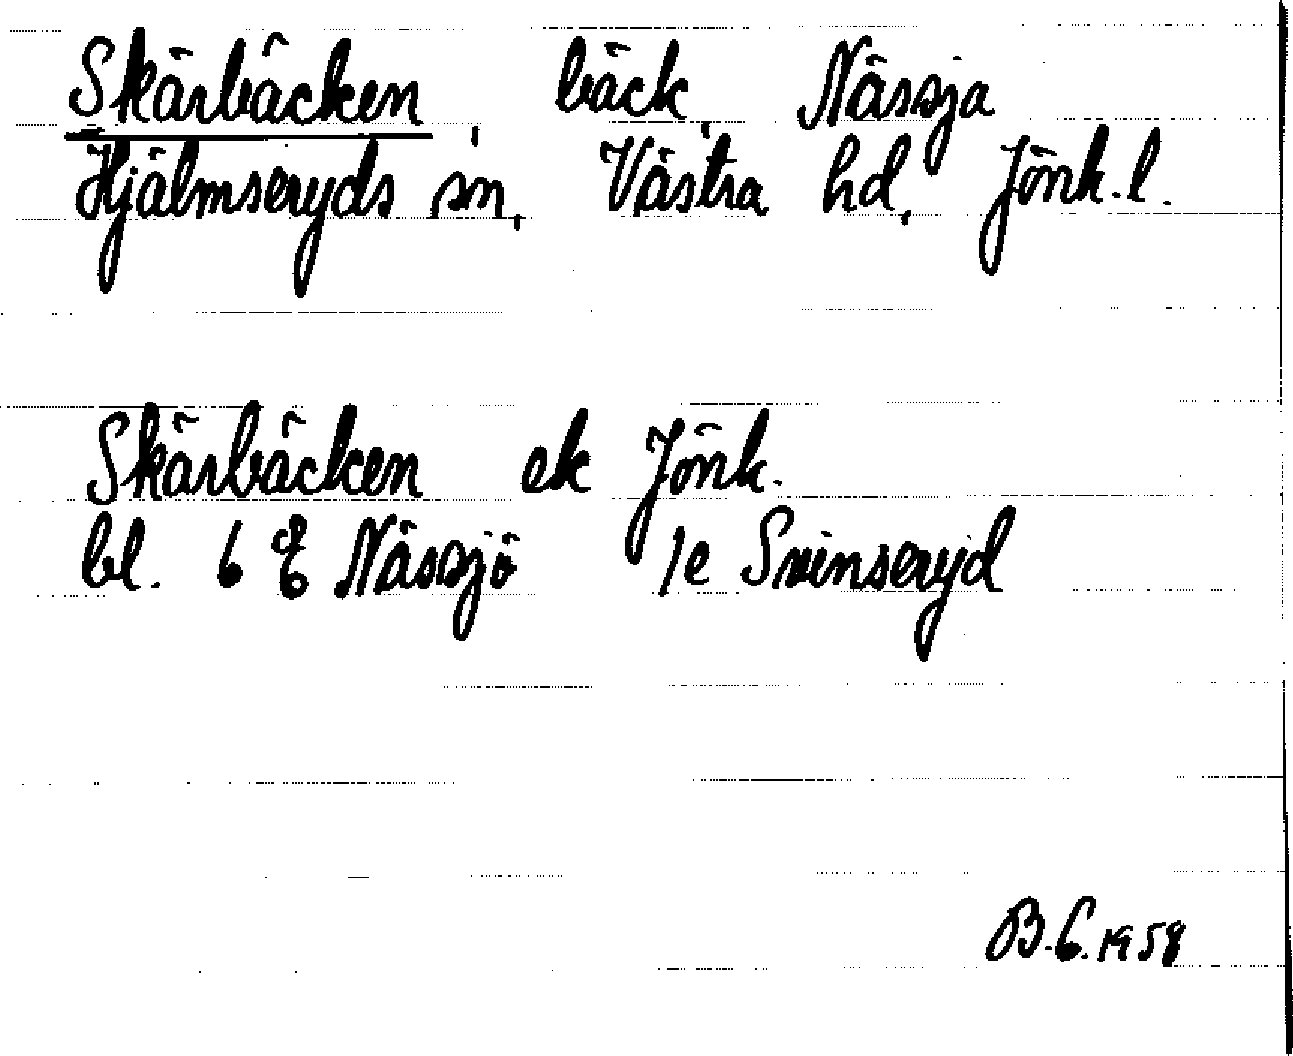 Skärbäcken, bäck, Nässja
Hjälmseryds sn, Västra hd, Jönk. l.
Skärbäcken ek Jönk.
bl. 6 Nässjö 1e Svinseryd
B.G. 1958